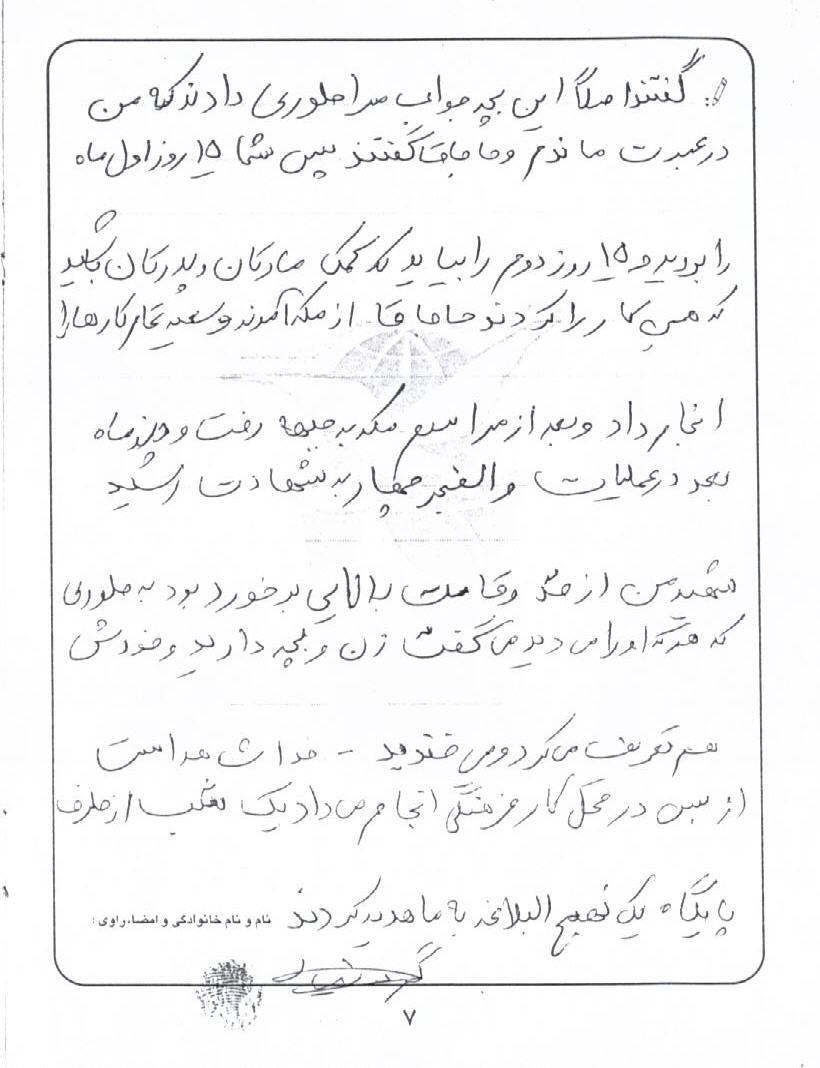 گفتند اصلاً این بچه جواب مرا طوری دادند که من
در عبرت ماندم و حاجاقا گفتند پس شما ۱۵ روز اول ماه
را بروید و ۱۵ روز دوم را بیایید که کمک مادرتان و پدرتان باشید
که همین کار را کردند و حاجاقا از مکه آمدند و سعید تمام کارها را
انجام داد و بعد از مراسم مکه به جبهه رفت و چند ماه
بعد در عملیات والفجر چهار به شهادت رسید
شهید من از قد و قامت بالایی برخوردار بود به طوری
که هر که او را می دید می گفت زن و بچه دارید و خودش
هم تعریف می کرد و می خندید - خدا شاهد است
از بس در محل کار فرهنگی انجام می داد یک شب از طرف
پایگاه یک نهج البلاغه به ما هدیه کردند
نام و نام خانوادگی و امضاء راوی :
۷